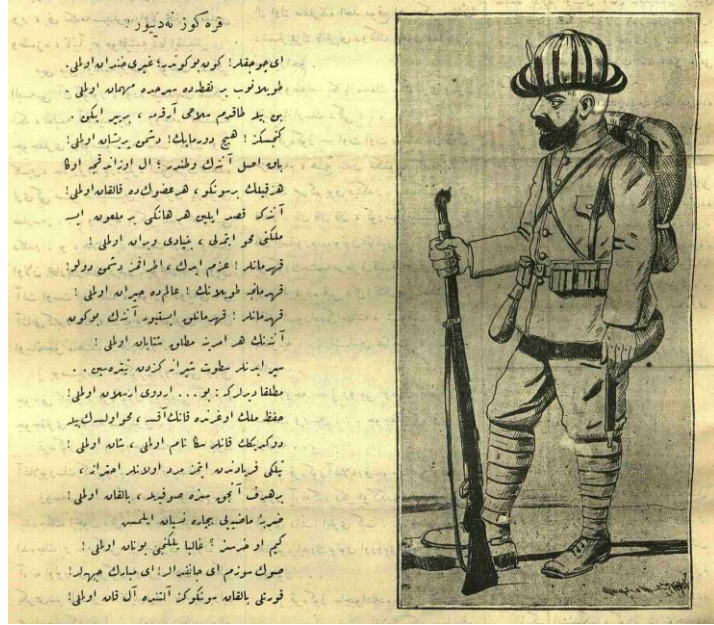 قره كوز نه ديور ؟
ای چوجقلر! كون بوكوندر؛ غيری خندان اولملی!
طوپلانوب بر نقطه‌ده سرحده مهمان اولملی!
بيك بيله طاقدم سلاحی آرقمه ، پيرير ايكن .
كنجسكز ! هيچ دورمايك! دشمن پريشان اولملی!
باق اصل آننك وطندر؛ ال اوزاندقجه اوكا
هر قيلك برسونكو ، هر عضوك ده قالقان اولملی!
آنده قصد ايلين هر هانكی بر ملعون ايسه
ملكنی محو ايتملی ، بنيادی ويران اولملی !
قهرمانلر ! عزم ايدك ، اطرافمز دشمن دولو!
قهرمانجه طوپلانك ! عالم‌ده حيران اولملی !
قهرمانلر ! قهرمانلق ايستيور آننك بوكون
آننه‌نك هر امرينه مطلق شتابان اولملی !
سير ايدنلر سطوت شيرانه كزدن تيتره‌سين . .
مطلقا ديرلركه : بو . . . اردوی ارسلان اولملی!
حفظ ملك اوغرنده قانك آقسه ، محو اولسك بيله
دوكديكك قانلر سكا نام اولملی ، شان اولملی !
تيلكی فرياددن ايتمز مرد اولانلر احتراز ،
برهدف آنجق سزه صوفيه ، بالقان اولملی!
ضربۀ ماضی‌يی بيچاره نسيان ايلمس
كيم او خرسز ؟ غالبا يلكنجی يونان اولملی !
صوك سوزم ای جانفدالر! ای مبارك جبهه‌لر!
قورتلی بالقان سونكوكز آلتنده آل قان اولملی!